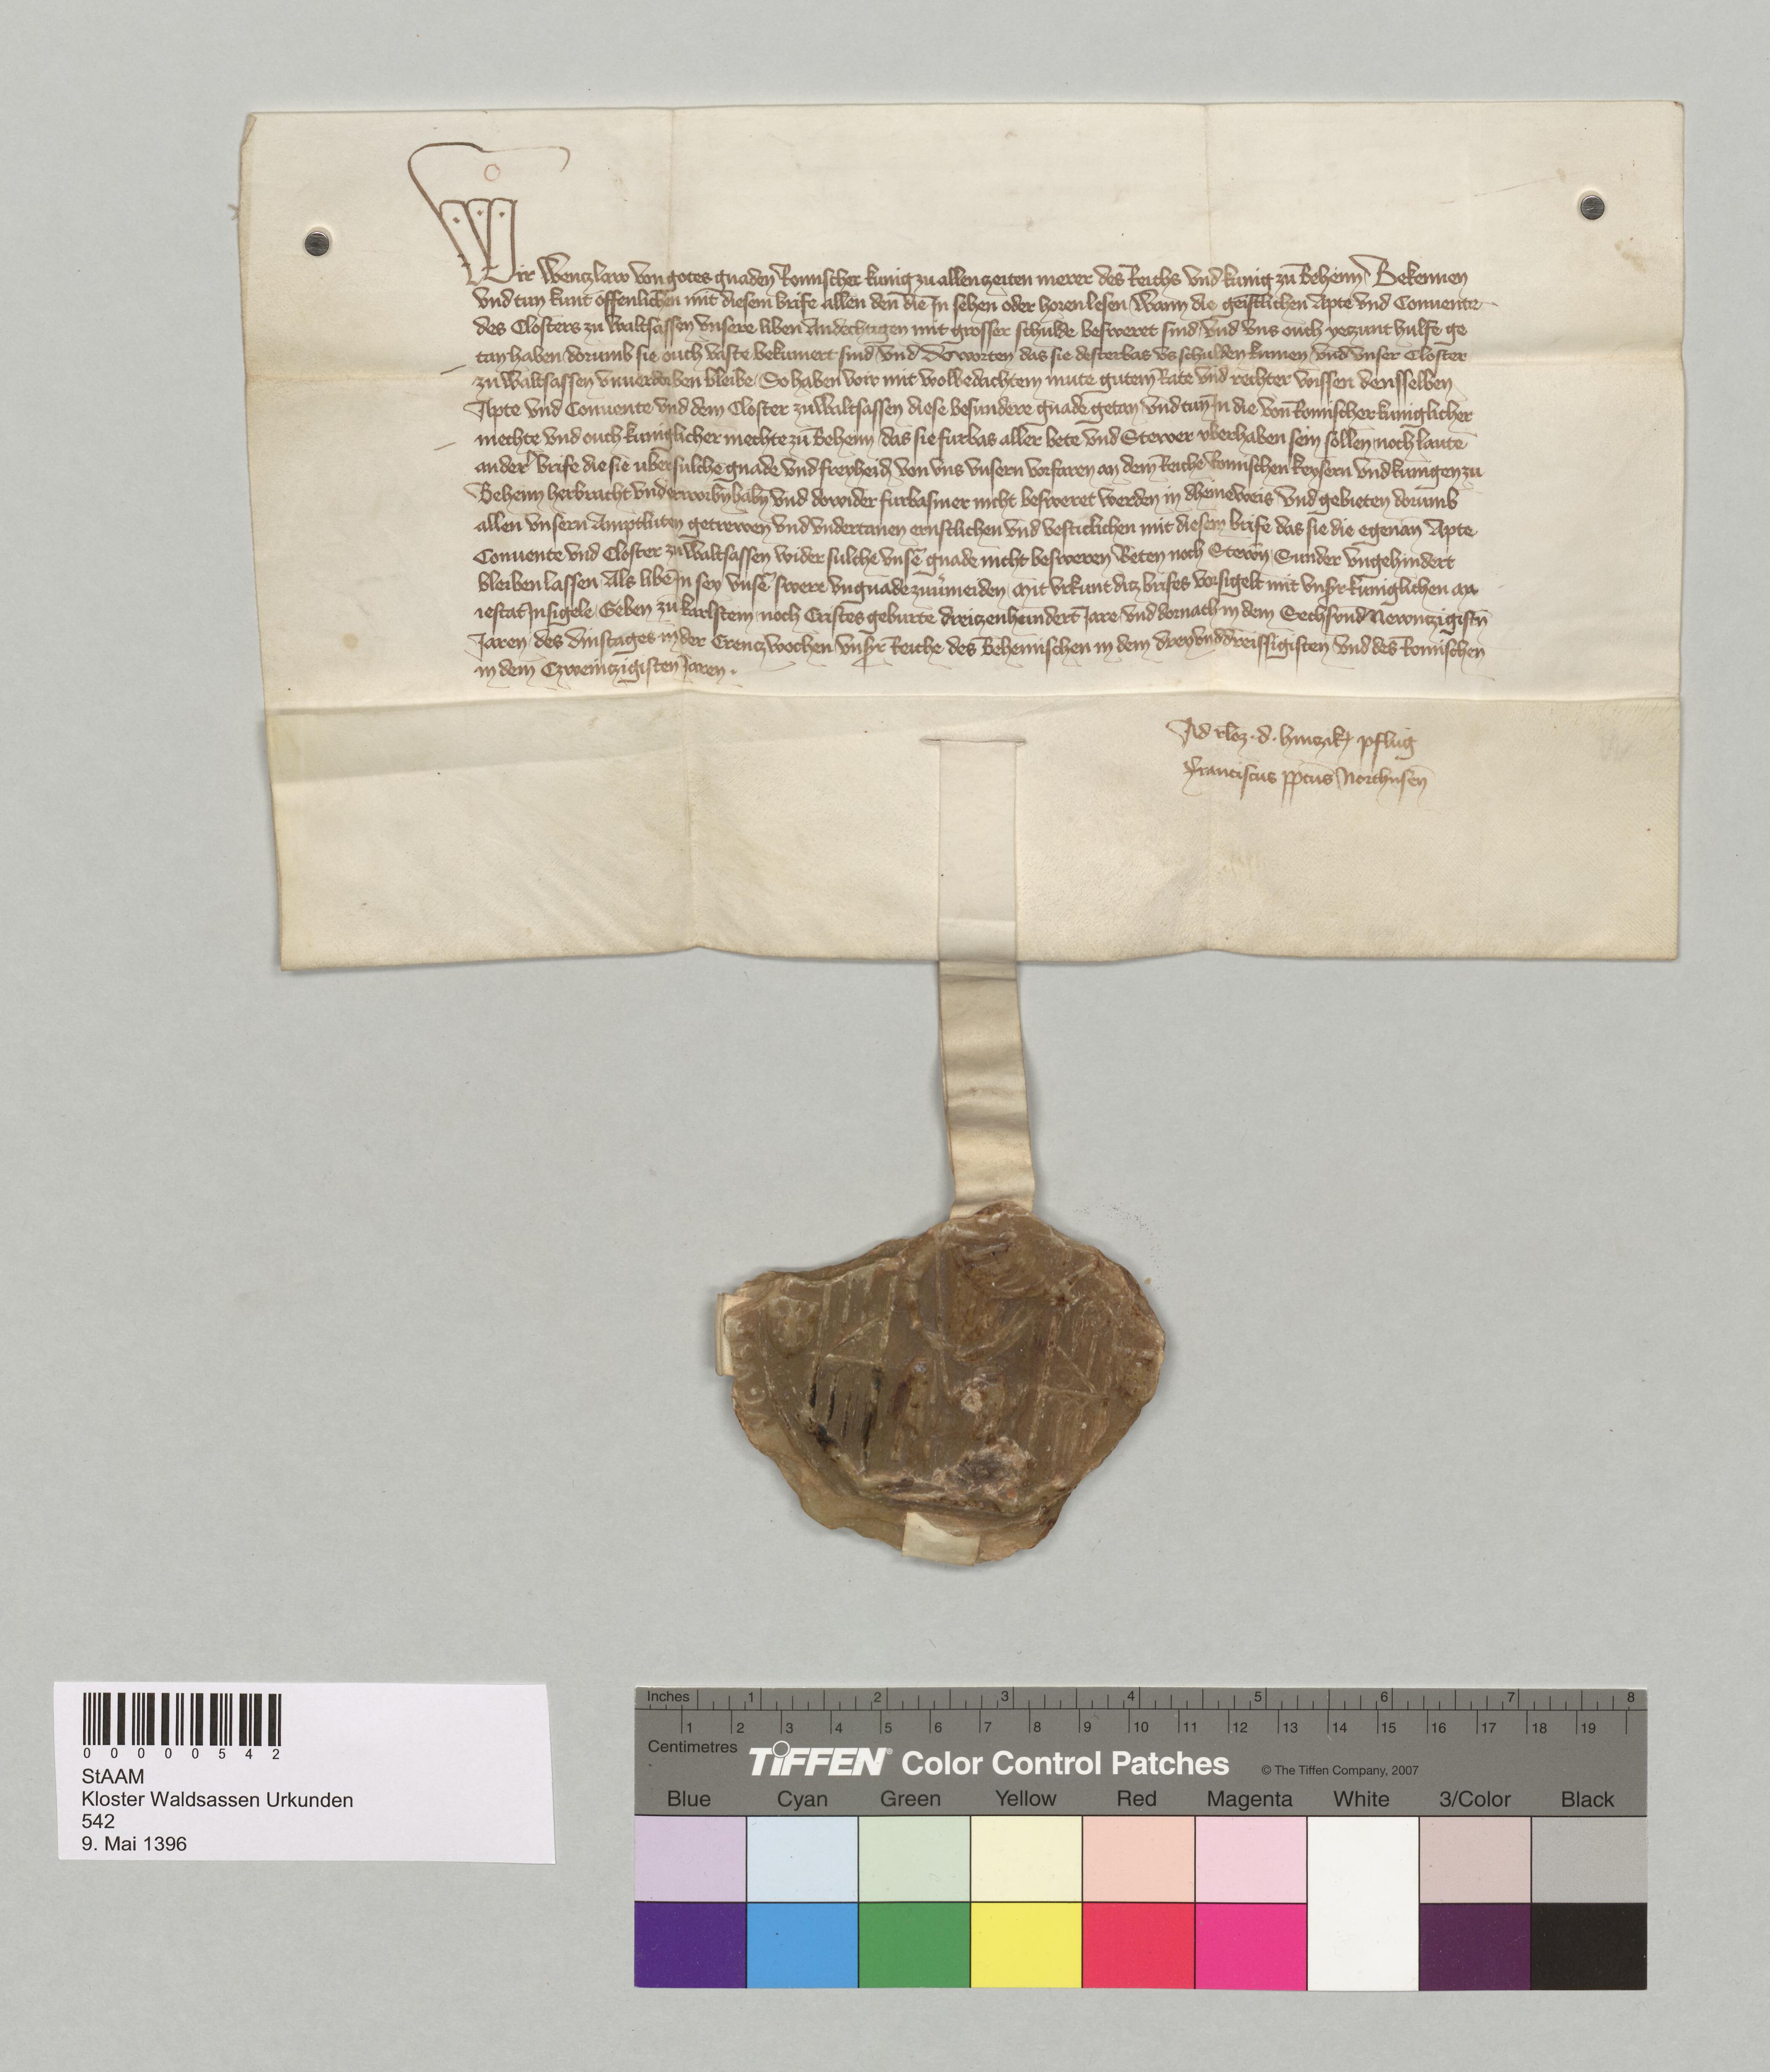 Wir Wenczlaw von gotes gnaden Romischer kunig zu allen zeiten merer des Reichs vnd kunig zu Behem Bekennen
vnd tun kunt offenlichen mit diesem brife allen den die In sehen oder horen lesen Wann die geistlichen Apte vnd Conuente
des Closters zu Waltsassen vnsere liben Andechtigen mit grosser schulde besweret sind vnd vns ouch yezunt hulfe ge
tan haben dorumb sie ouch vaste bekumert sind vnd worten das sie desterbas vs schulden kumen vnd vnser Closter
zu Waltsassen vnuerdorben bleibe So haben wir mit wolbedachtem mute gutem Rate vnd rechter wissen densselben
Apte vnd Conuente vnd dem Closter zu Waltsassen diese besundere gnade getan vnd tun In die von Romischer kuniglicher
mechte vnd ouch kuniglicher mechte zu Behem das sie furbas aller bete vnd Stewer vberhaben sein sollen noch laute
ander brife die sie uber sulche gnade vnd freyheid von vns vnsern vorfaren an dem Reiche Romischen keysern vnd kunigen zu
Behem herbracht vnd erworben haben vnd dowider furbasmer nicht besweret werden in dheineweis vnd gebieten dorumb
allen vnsern Amptluten getrewen vnd vndertanen ernstlichen vnd vesticlichen mit diesem brife das sie die egenan Apte
Conuente vnd Closter zu Waltsassen wider sulche vnse gnade nicht besweren Beten noch Stewrn Sunder vngehindert
bleiben lassen Als libe In sey vnse swere vngnade zuuermeiden Mit vrkunt diz brifes vorsigelt mit vnser kuniglichen Ma
iestat Insigele Geben zu karlstein noch Cristes geburte dreizenhundert Jare vnd dornach in dem Sechsvnd Newnczigistn
Jaren des dinstages in der Creuczwochen vnser Reiche des Behemischen in dem dreyvnddreissigisten vnd des Romischen
in dem Czweinczigisten Jaren.
Ad rloz. d. hinczik pflug
Franciscus pptus Northusen
0 0 0 0 0 5 4 2
StAAM
Kloster Waldsassen Urkunden
542
9. Mai 1396
Inches 1 2 3 4 5 6 7 8
1 2 3 4 5 6 7 8 9 10 11 12 13 14 15 16 17 18 19
Centimetres
TIFFEN® Color Control Patches © The Tiffen Company, 2007
Blue Cyan Green Yellow Red Magenta White 3/Color Black